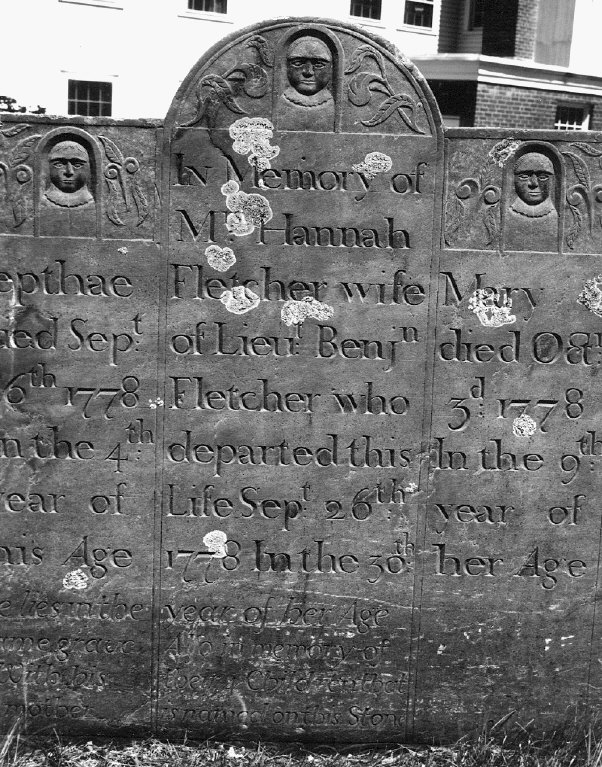 epthae
ied Sepᵗ.
6ᵗʰ 1778
In the 4ᵗʰ.
year of
his Age
e lies in the
same grave
With his
mother
In Memory of
Mʳˢ. Hannah
Fletcher wife
of Lieuᵗ. Benjⁿ
Fletcher who
departed this
Life Sepᵗ. 26ᵗʰ.
1778 In the 30ᵗʰ.
year of her Age
Also in memory of
Children that
is named on this Stone
Mary
died Octʳ
3ᵈ. 1778
In the 9ᵗʰ
year of
her Age